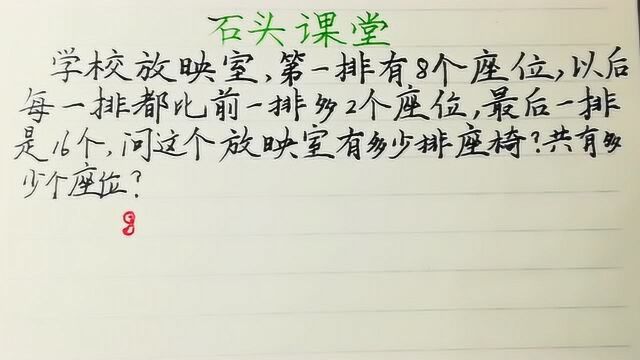 石头课堂
学校放映室,第一排有8个座位,以后
每一排都比前一排多2个座位,最后一排
是16个,问这个放映室有多少排座椅?共有多
少个座位?
8